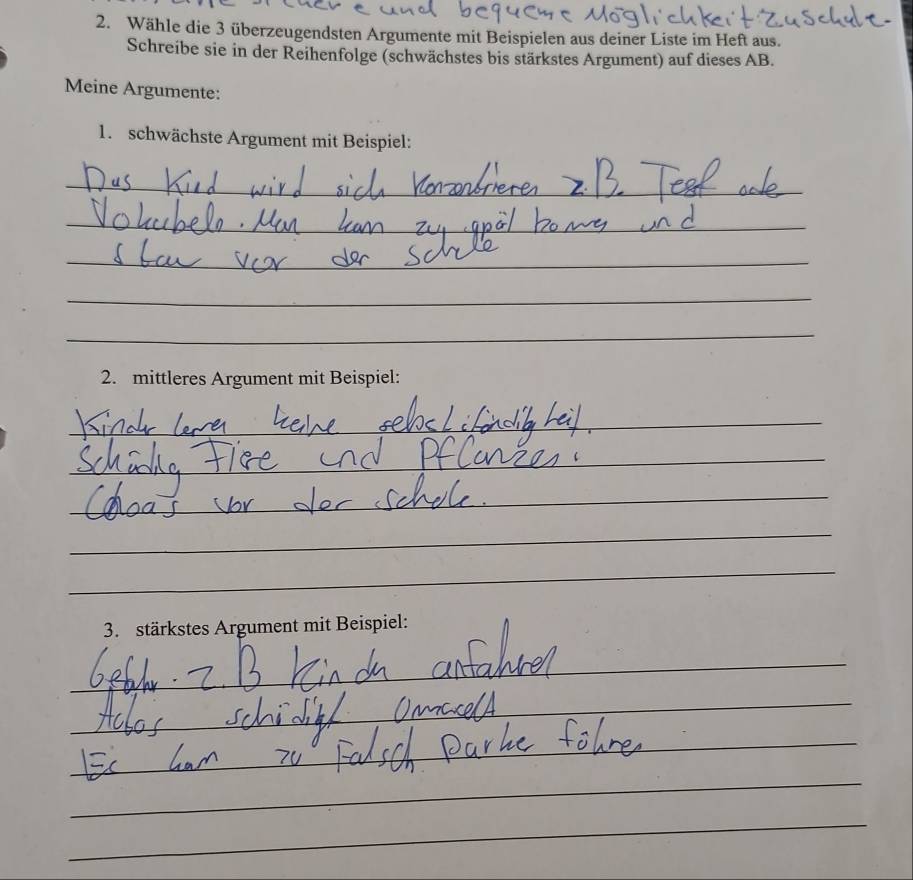 und bequeme Möglichkeit zu Schule.
2. Wähle die 3 überzeugendsten Argumente mit Beispielen aus deiner Liste im Heft aus.
Schreibe sie in der Reihenfolge (schwächstes bis stärkstes Argument) auf dieses AB.
Meine Argumente:
1. schwächste Argument mit Beispiel:
Das Kind wird sich konzentrieren z.B. Test ode
Vokabeln. Man kan zu spät komme und
Stau vor der schule
2. mittleres Argument mit Beispiel:
Kinder lernen keine selbstständigkeit.
Schädig Tiere und Pflanzen.
Choas vor der schule.
3. stärkstes Argument mit Beispiel:
Gefahr. z.B Kinder anfahren
Autos schädigt Umwelt
Es kan zu Falsch Parke führen